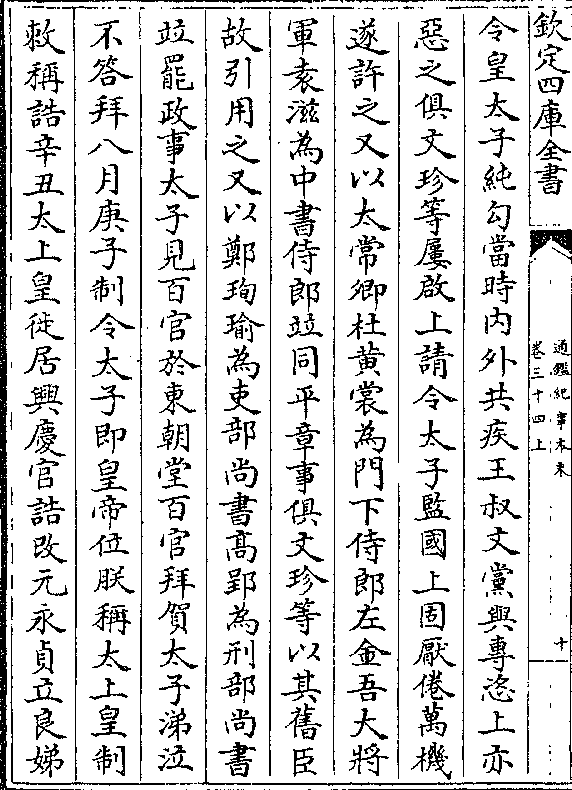 欽定四庫全書
通鑑紀事本末
卷三十四上
十
令皇太子純勾當時内外共疾王叔文黨與專恣上亦
惡之俱文珍等屢啟上請令太子監國上固厭倦萬機
遂許之又以太常卿杜黄裳為門下侍郎左金吾大將
軍袁滋為中書侍郎竝同平章事俱文珍等以其舊臣
故引用之又以鄭珣瑜為吏部尚書高郢為刑部尚書
竝罷政事太子見百官於東朝堂百官拜賀太子涕泣
不答拜八月庚子制令太子即皇帝位朕稱太上皇制
敕稱誥辛丑太上皇徙居興慶宫誥改元永貞立良娣